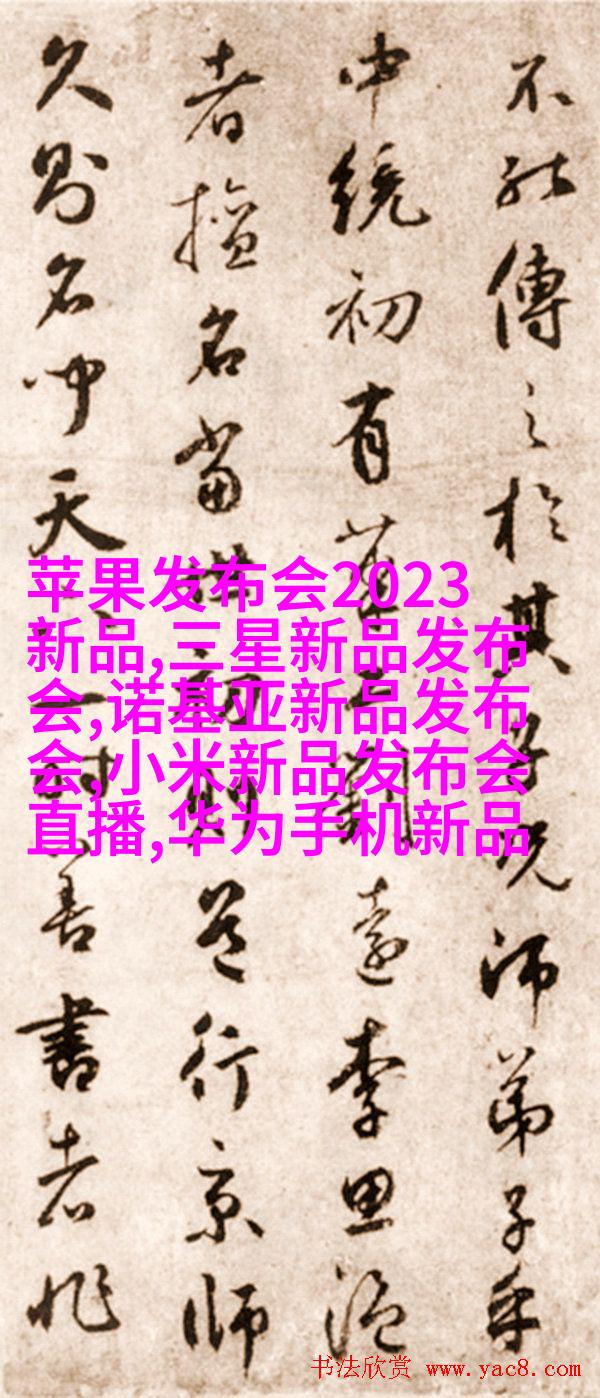 不能傳之於其子况師弟子乎
中統初有遠李思
者擅名當則道行京師
久則名聞天善書者非
苹果发布会2023
新品,三星新品发布
会,诺基亚新品发布
会,小米新品发布会
直播,华为手机新品
书法欣赏 www.yac8.com